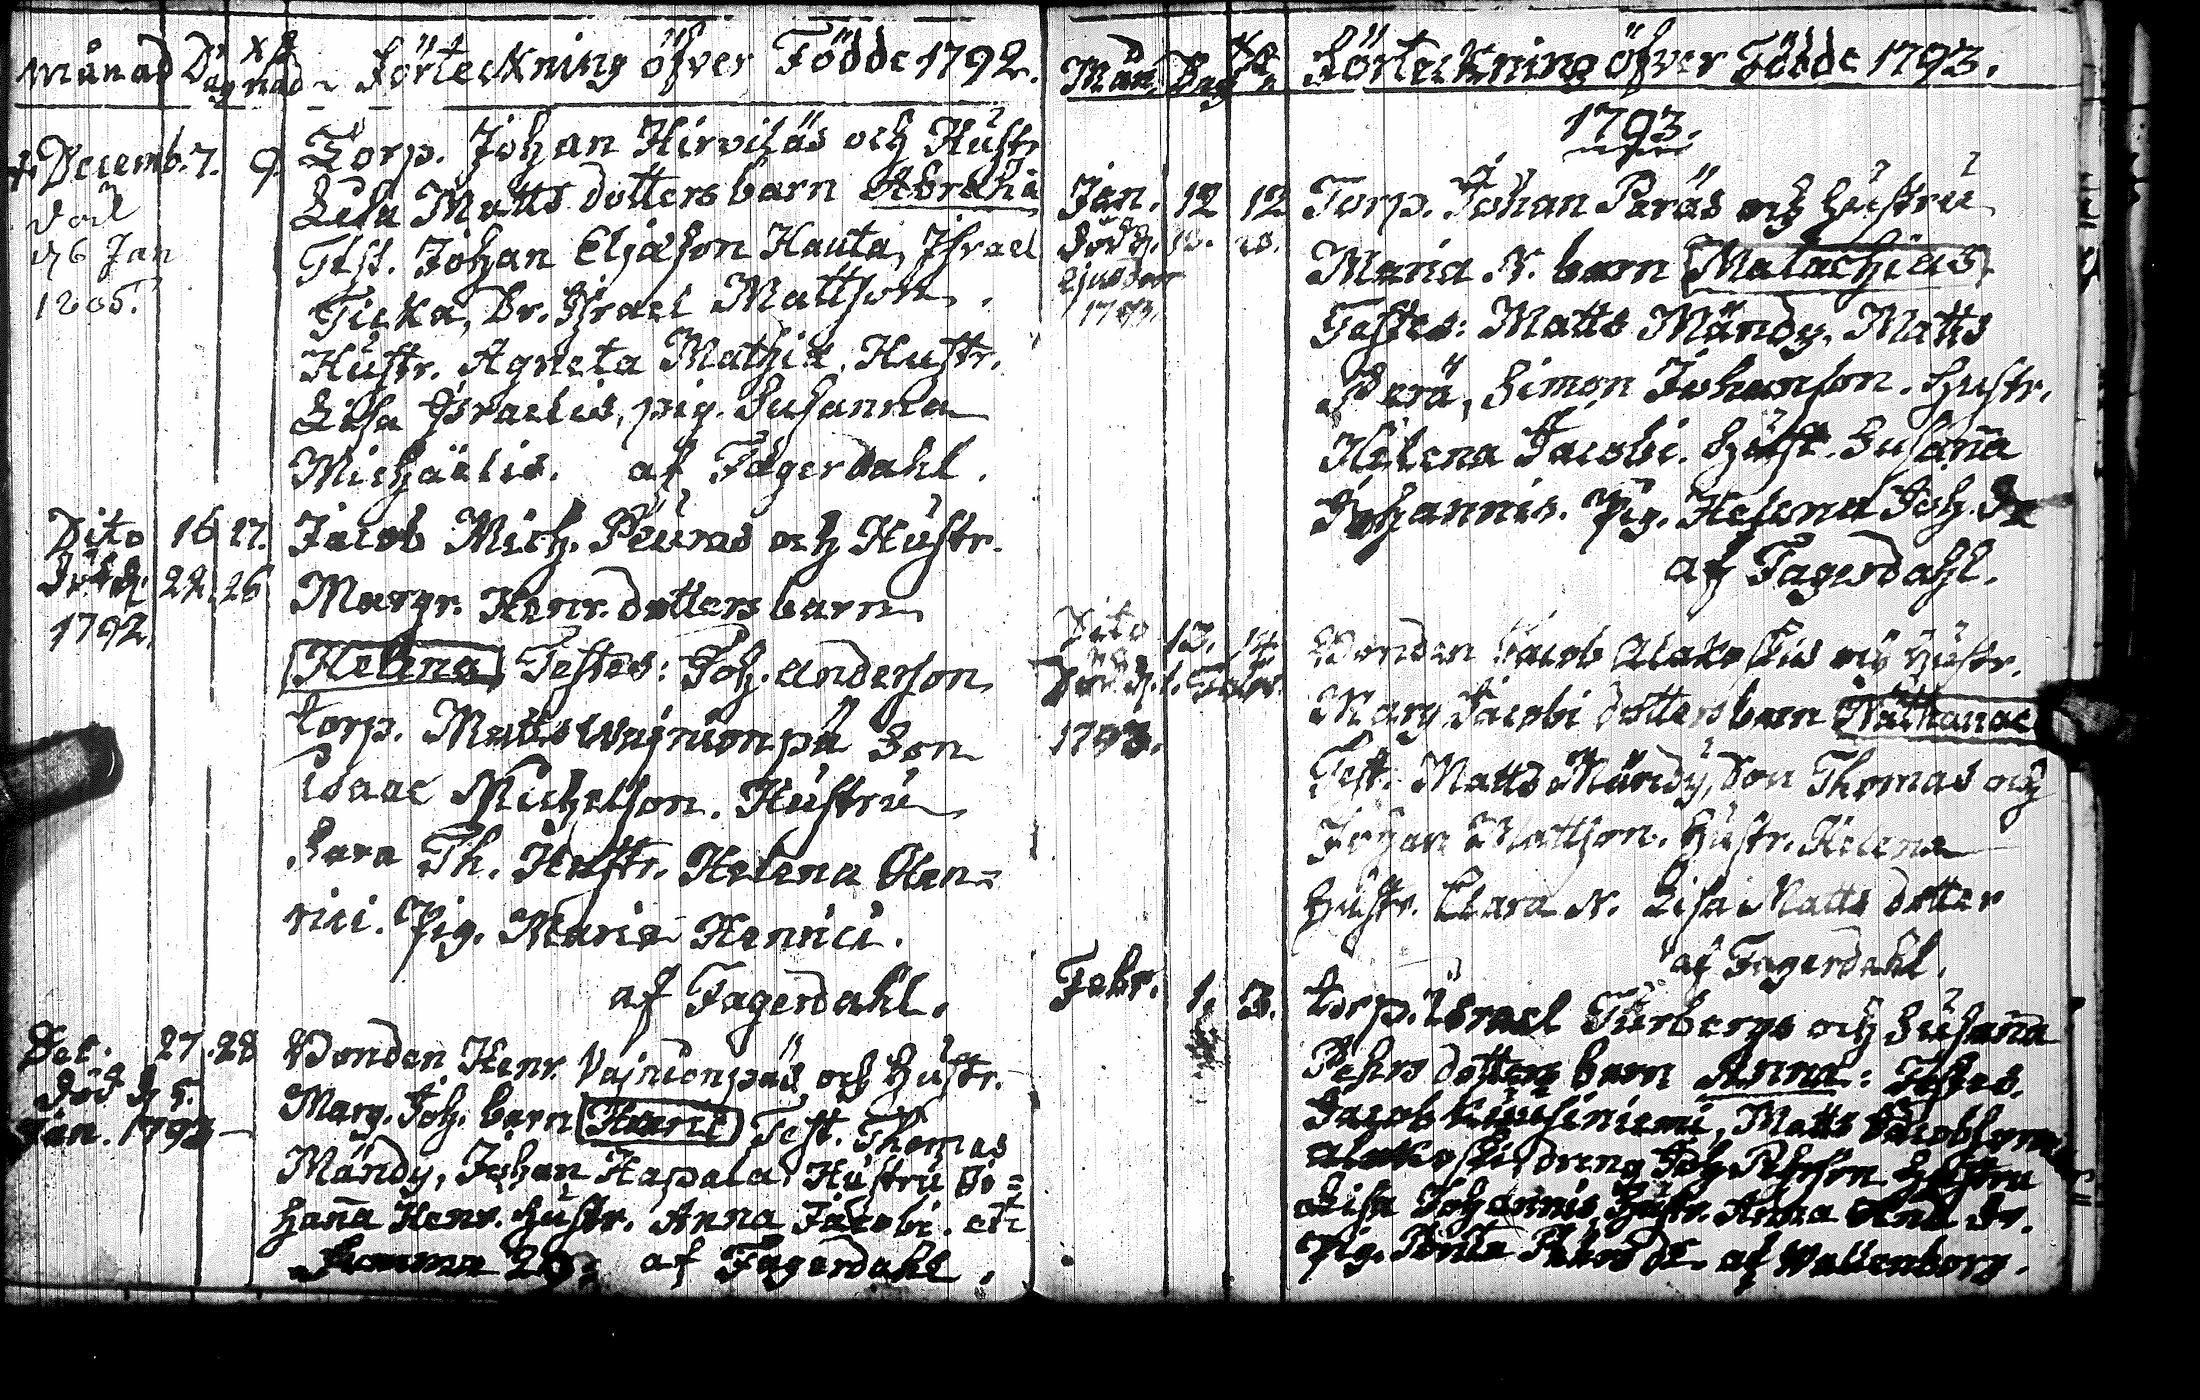 Månad Dag Xstnad Förteckning öfver Födde 1792.
Decemb. 7. 9. Torp. Johan Hirviläs och Hustr.
död Lisa Matts dotters barn Abraha
d 6 Jan Test. Johan Eljæson Hauta, Israel
1805. Ticka, Dr. Israel Mattson.
Hustr. Agneta Mathiæ, Hustr.
Lisa Israelis, pig. Susanna
Michäelis. af Fagerdahl.
Dito 16 17. Jacob Mich. Peuras och Hustr.
Död d. 22. 26 Margr. Henr. dotters barn
1792. Helena Testes: Joh. Anderson
torp. Matts Wajnionpä Son
Isaac Michelson. Hustru
Sara Th. Hustr. Helena Hen=
rici. Pig. Maria Henrici.
af Fagerdahl.
Dec. 27. 28 Bonden Henr. Vajnionpäs och Hustr.
död d 5. Marg. Joh. barn Henric Test. Thomas
Jan. 1793 Mändy, Johan Hapala, Hustru Jo=
hanna Henr. Hustr. Anna Jacobi. etc
Summa 29. af Fagerdahl.
Mån. Dag Förteckning öfver Födde 1793.
1793.
Jan. 12 12 Torp. Johan Peräs och Hustru
död d. Maria N. barn Malachias.
1793. Testes: Matts Mändy, Matts
Perä, Simon Johanson. Hustr.
Helena Jacobi. Hustr. Susanna
Johannis. Pig. Helena Joh. Dr
af Fagerdahl.
Dito 13. 14. Bonden Jacob Alakoskis och Hustr.
Död d. 1. Febr. Marg. Jacobi dotters barn Nathanael
1793. Test. Matts Mändy, Son Thomas och
Johan Mattson. Hustr. Helena
Hustr. Clara N. Lisa Matts dotter
af Fagerdahl.
Febr. 1. 3. Torp. Israel Turbergs och Susanna
Pehrs dotters barn Anna: Testes.
Jacob Matts Jacobson
Alakoski, dreng Joh. Pehrson Hustru
Lisa Johannis, Hustr. Anna Dr.
Pig. Pehrs Dr. af Wallenborg.